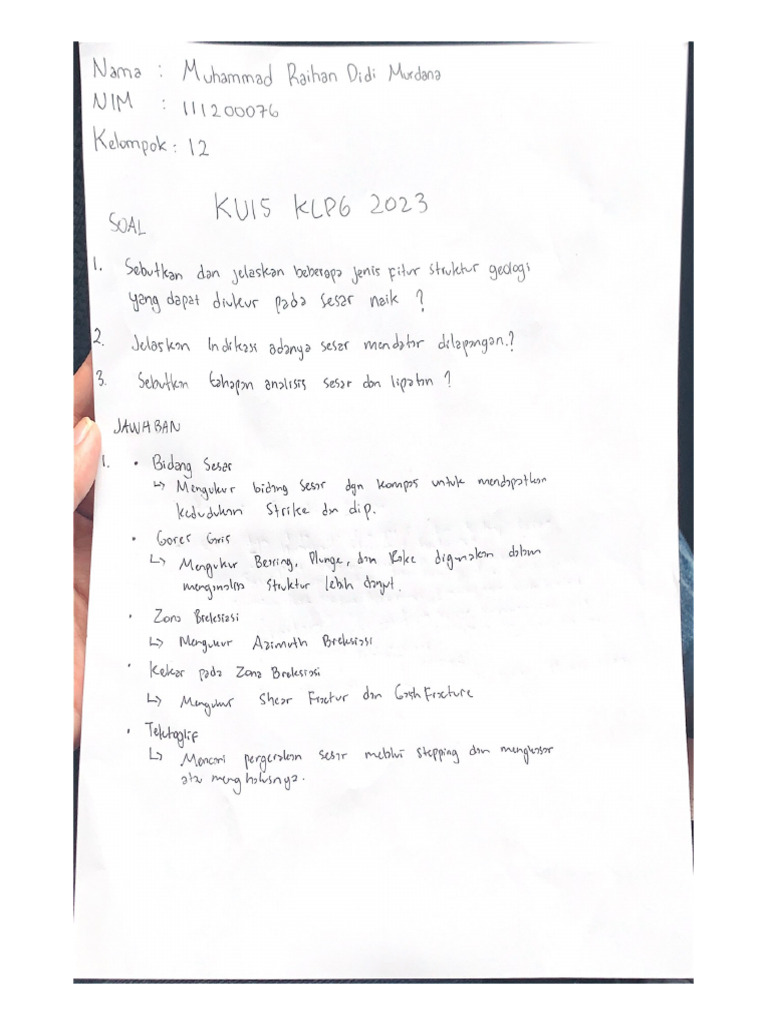 Nama : Muhammad Raihan Didi Murdana
NIM : 111200076
Kelompok : 12
KUIS KLPG 2023
SOAL
1. Sebutkan dan jelaskan beberapa jenis fitur struktur geologi
yang dapat diukur pada sesar naik ?
2. Jelaskan Indikasi adanya sesar mendatar dilapangan.?
3. Sebutkan tahapan analisis sesar dan lipatan ?
JAWABAN
1. • Bidang Sesar
↳ Mengukur bidang sesar dgn kompas untuk mendapatkan
kedudukan Strike dan dip.
• Gores Garis
↳ Mengukur Bearing, Plunge, dan Rake digunakan dalam
menganalisa struktur lebih lanjut.
• Zona Breksiasi
↳ Mengukur Azimuth Breksiasi
• Kekar pada Zona Breksiasi
↳ Mengukur Shear Fractur dan Gash Fracture
• Tektoglif
↳ Mencari pergerakan sesar melalui stepping dan mengkasar
atau menghalusnya.